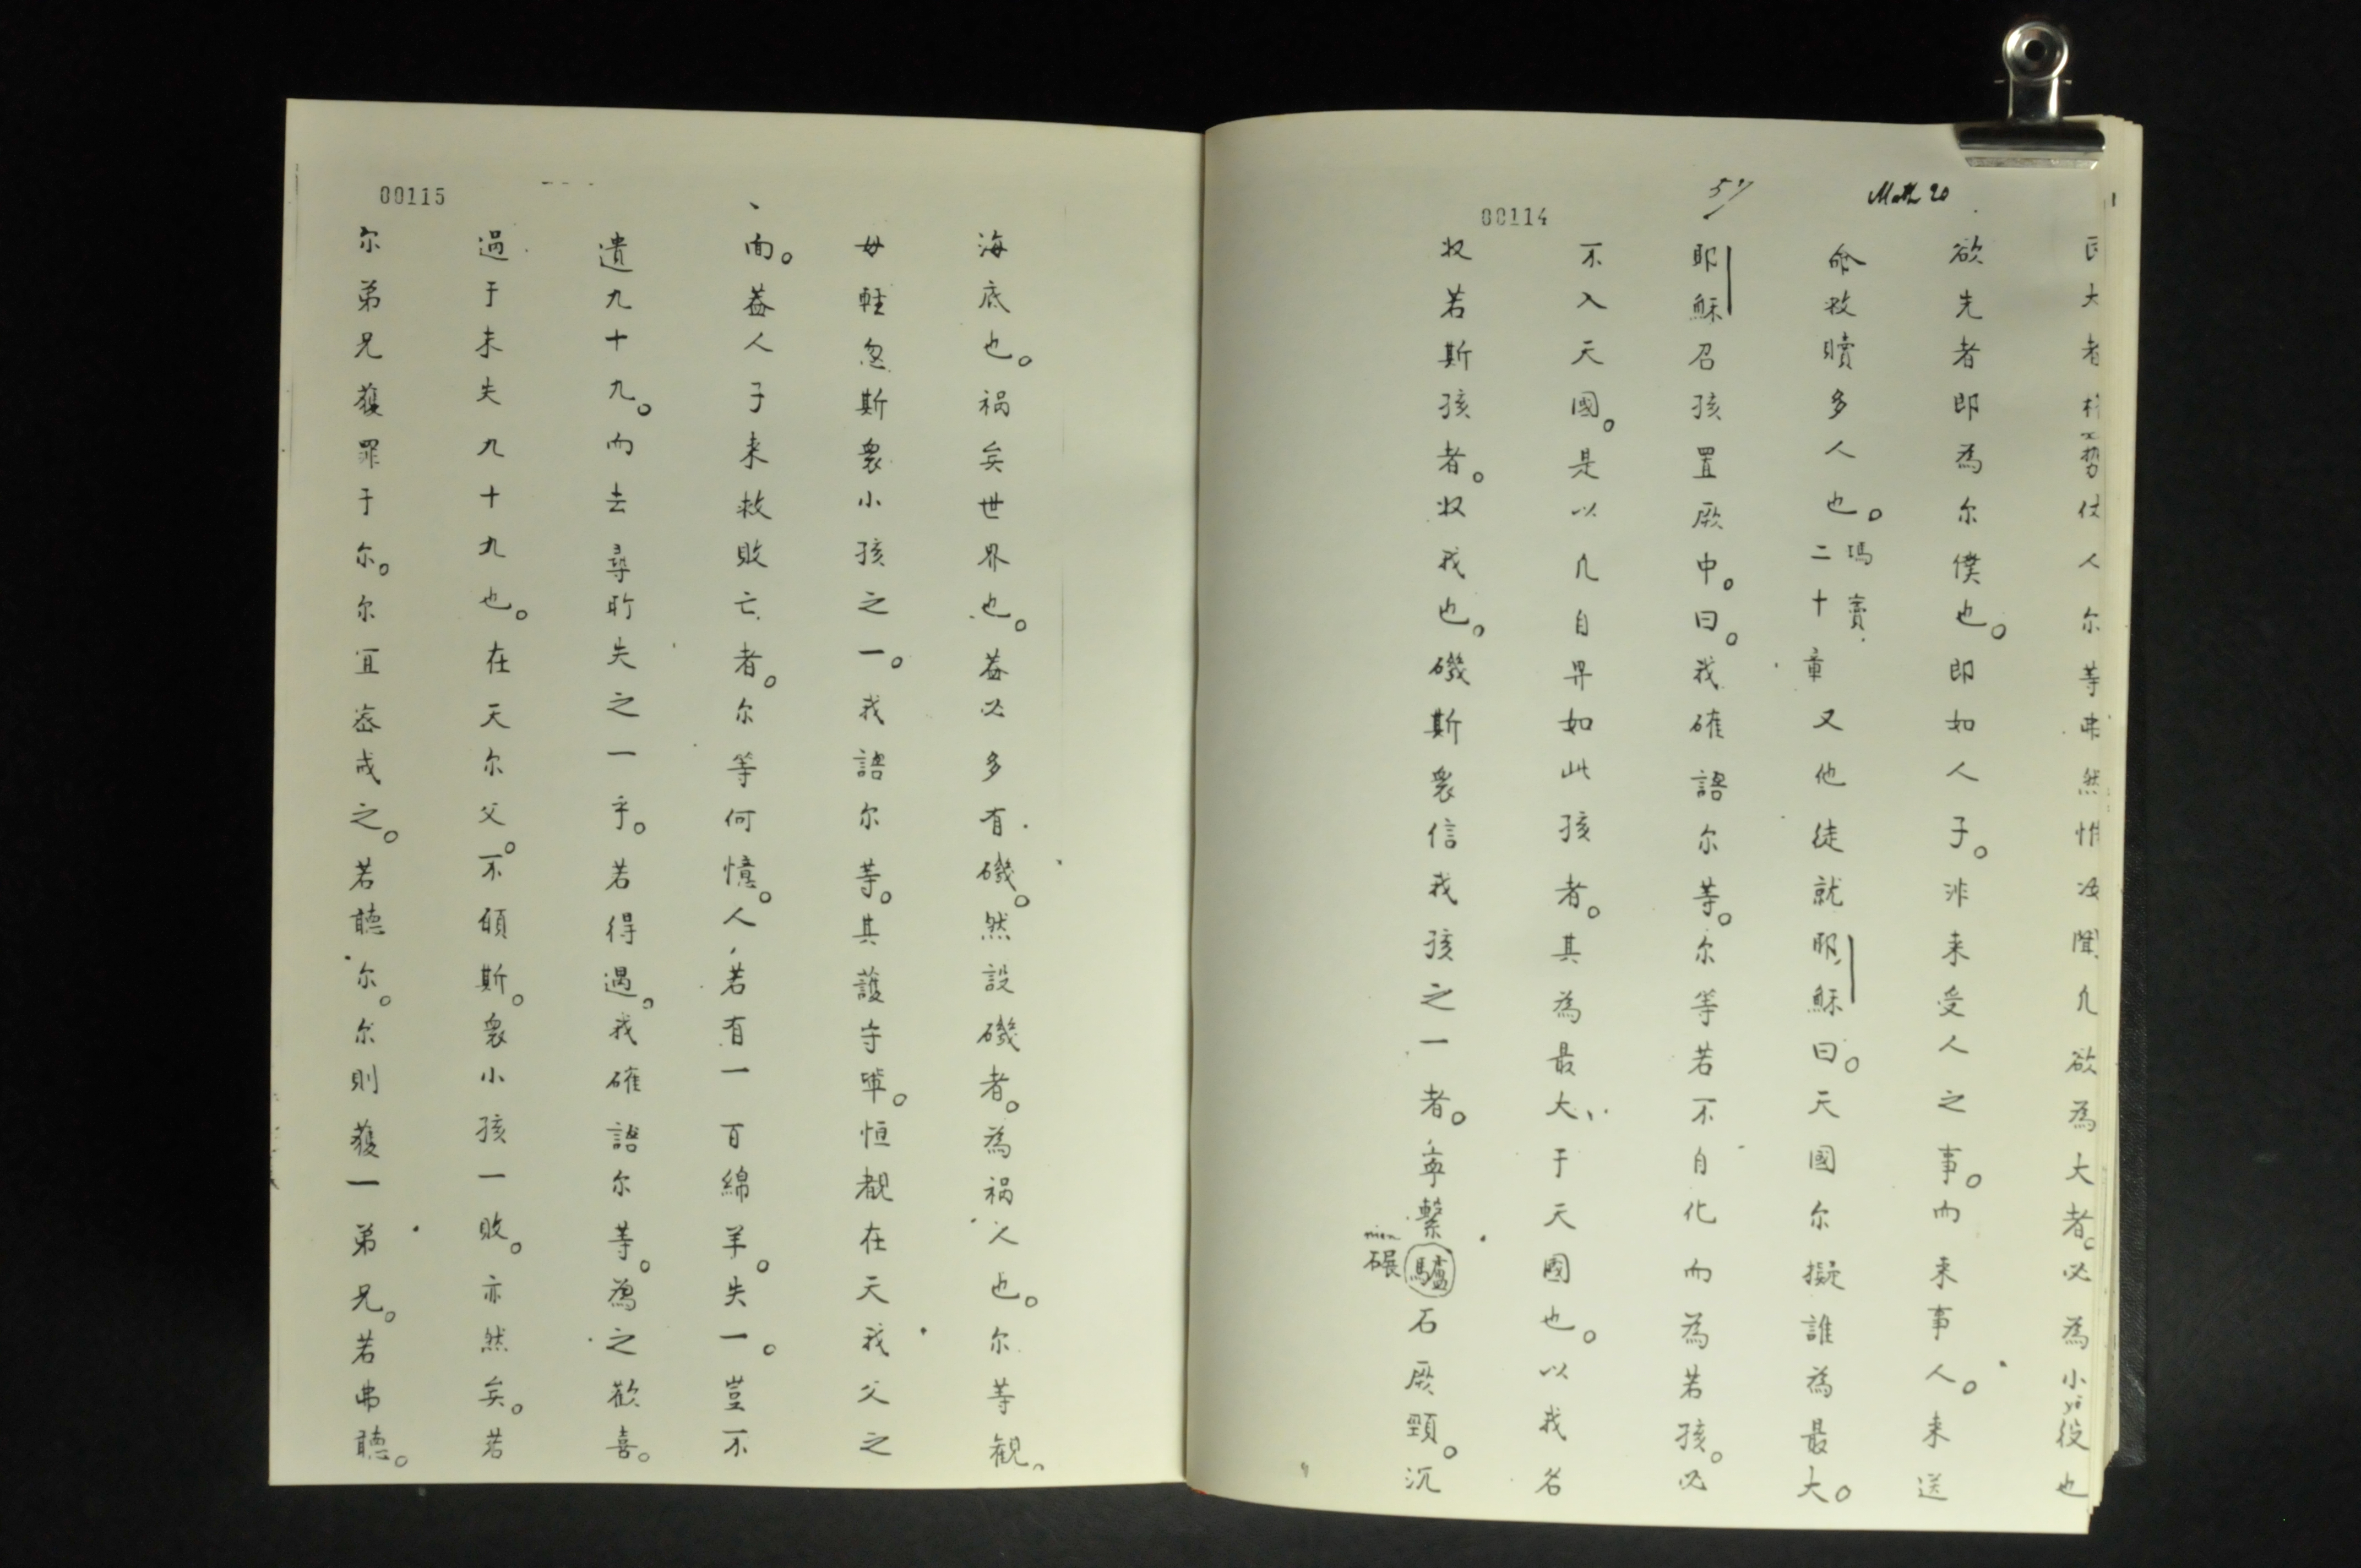 Math 20
57
00114
大者
人尔等弗然惟
聞凡欲為大者。必為小役也
欲先者即為尔僕也。即如人子。非来受人之事。而来事人。来送
命救贖多人也。瑪竇二十章又他徒就耶穌曰。天國尔擬誰為最大。
耶穌召孩置厥中。曰。我確語尔等。尔等若不自化而為若孩。必
不入天國。是以凡自畀如此孩者。其為最大于天國也。以我名
收若斯孩者。收我也。磯斯衆信我孩之一者。寧繫驢石厥頸。沉
nien
碾
00115
海底也。祸矣世界也。葢必多有磯。然設磯者。為祸人也。尔等覌。
毋軽忽斯衆小孩之一。我語尔等。其護守軰。恒覩在天我父之
面。葢人子来救敗亡者。尔等何憶。人若有一百綿羊。失一。豈不
遺九十九。而去尋所失之一乎。若得遇。我確語尔等。為之歡喜。
過于未失九十九也。在天尔父。不願斯。衆小孩一敗。亦然矣。若
尔弟兄獲罪于尔。尔宜宻戒之。若聽尔。尔則獲一弟兄。若弗聽。